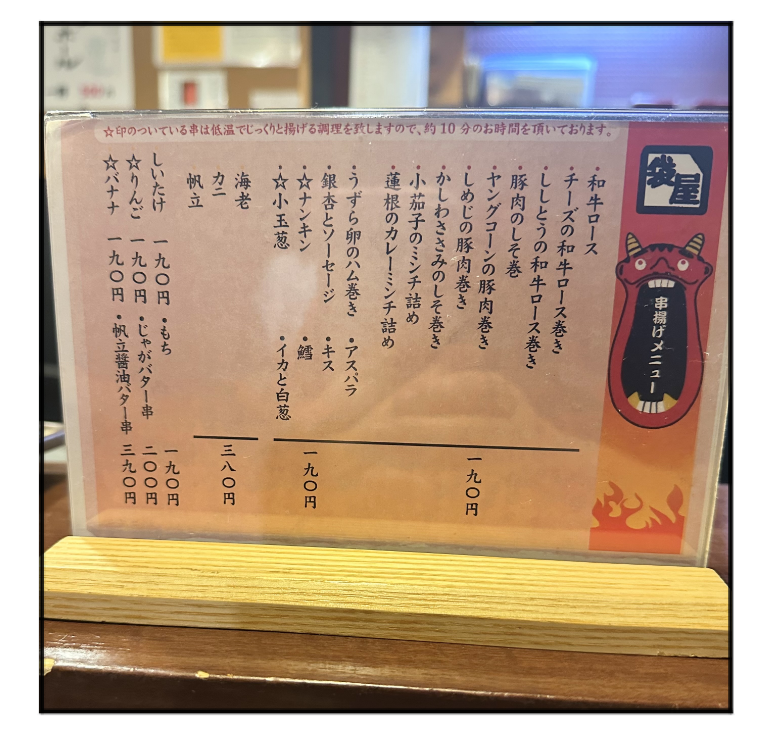 ☆印のついている串は低温でじっくりと揚げる調理を致しますので、約10分のお時間を頂いております。
袋屋
串揚げメニュー
・和牛ロース
・チーズの和牛ロース巻き
・ししとうの和牛ロース巻き
・豚肉のしそ巻
・ヤングコーンの豚肉巻き
・しめじの豚肉巻き
・かしわささみのしそ巻き
・小茄子のミンチ詰め
・蓮根のカレーミンチ詰め
一九〇円
・うずら卵のハム巻き
・アスパラ
・銀杏とソーセージ
・キス
・☆ナンキン
・鱈
・☆小玉葱
・イカと白葱
一九〇円
海老
カニ
帆立
三八〇円
しいたけ 一九〇円
☆りんご 一九〇円
☆バナナ 一九〇円
・もち 一九〇円
・じゃがバター串 二〇〇円
・帆立醤油バター串 三九〇円